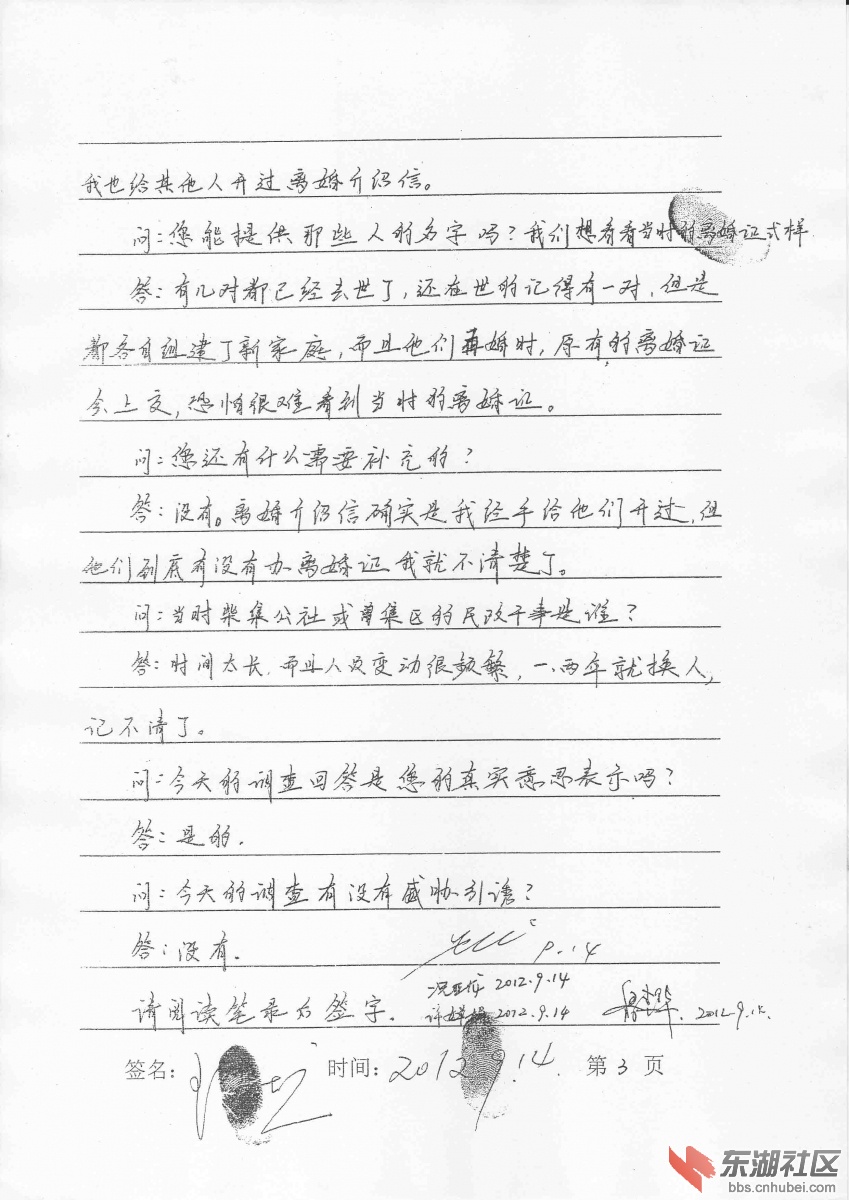 我也给其他人开过离婚介绍信。
问：您能提供那些人的名字吗？我们想看看当时的离婚证式样
答：有几对都已经去世了，还在世的记得有一对，但是
都各自组建了新家庭，而且他们再婚时，原有的离婚证
会上交，恐怕很难看到当时的离婚证。
问：您还有什么需要补充的？
答：没有。离婚介绍信确实是我经手给他们开过，但
他们到底有没有办离婚证我就不清楚了。
问：当时柴集公社或曾集区的民政干事是谁？
答：时间太长，而且人员变动很频繁，一、两年就换人，
记不清了。
问：今天的调查回答是您的真实意思表示吗？
答：是的.
问：今天的调查有没有威胁引诱？
答：没有.
9.14
2012.9.14
请阅读笔录后签字.
2012.9.14
2012.9.14
签名：
时间：2012 9.14.
第3页
东湖社区
bbs.cnhubei.com